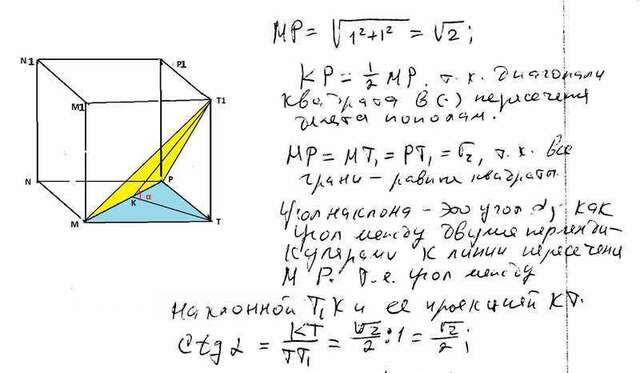 MP = √1²+1² = √2;
KP = 1/2 MP, т.к. диагонали
квадрата в (·) пересечения
делятся пополам.
MP = MT₁ = PT₁ = √2, т.к. все
грани – равные квадраты
Угол наклона – это угол α, как
угол между двумя перпенди-
кулярами к линии пересечения
MP. т.е. угол между
наклонной T₁K и её проекцией KT.
Ctg α = KT/TT₁ = √2/2 : 1 = √2/2;
N1
P1
M1
T1
N
P
K
α
M
T